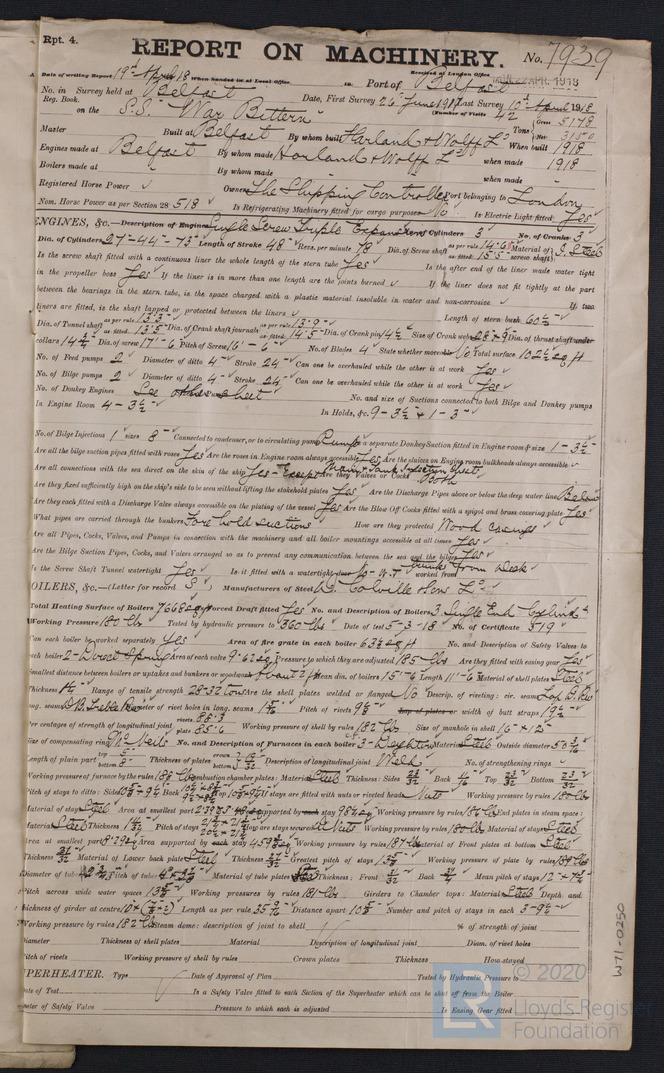 Rpt. 4.
REPORT ON MACHINERY.
No. 7939
Date of writing Report 19th April 18 When handed in at Local Office
Received at London Office
MON. 22 APR. 1918
Port of Belfast
No. in Survey held at Belfast Date, First Survey 26 June 1917 Last Survey 10 April 1918
Reg. Book. (Number of Visits 42
on the S.S. War Bittern
Tons Gross 5178
Net 3150
Master Built at Belfast By whom built Harland & Wolff Ld When built 1918
Engines made at Belfast By whom made Harland & Wolff Ld when made 1918
Boilers made at By whom made when made
Registered Horse Power Owners The Shipping Controller Port belonging to London
Nom. Horse Power as per Section 28 518 Is Refrigerating Machinery fitted for cargo purposes No Is Electric Light fitted Yes
ENGINES, &c.—Description of Engines Single Screw Triple Expansion No. of Cylinders 3 No. of Cranks 3
Dia. of Cylinders 27-44-73 Length of Stroke 48 Revs. per minute 78 Dia. of Screw shaft as per rule 14.65 as fitted 15.5 Material of screw shaft I. Steel
Is the screw shaft fitted with a continuous liner the whole length of the stern tube Yes Is the after end of the liner made water tight
in the propeller boss Yes If the liner is in more than one length are the joints burned If the liner does not fit tightly at the part
between the bearings in the stern tube, is the space charged with a plastic material insoluble in water and non-corrosive If two
liners are fitted, is the shaft lapped or protected between the liners Length of stern bush 60½
Dia. of Tunnel shaft as per rule 13.3 as fitted 13.5 Dia. of Crank shaft journals as per rule 13.9 as fitted 14.5 Dia. of Crank pin 14½ Size of Crank webs 28 × 9 Dia. of thrust shaft under
collars 14¾ Dia. of screw 17-6 Pitch of Screw 16-6 No. of Blades 4 State whether moveable No Total surface 102½ sq ft
No. of Feed pumps 2 Diameter of ditto 4 Stroke 24 Can one be overhauled while the other is at work Yes
No. of Bilge pumps 2 Diameter of ditto 4 Stroke 24 Can one be overhauled while the other is at work Yes
No. of Donkey Engines See other sheet No. and size of Suctions connected to both Bilge and Donkey pumps
In Engine Room 4-3½ In Holds, &c. 9-3½ & 1-3
No. of Bilge Injections 1 sizes 8 Connected to condenser, or to circulating pump Pump Is a separate Donkey Suction fitted in Engine room & size 1-3½
Are all the bilge suction pipes fitted with roses Yes Are the roses in Engine room always accessible Yes Are the sluices on Engine room bulkheads always accessible
Are all connections with the sea direct on the skin of the ship Yes-Except Main & Tank Injection Chests Are they Valves or Cocks Both
Are they fixed sufficiently high on the ship's side to be seen without lifting the stokehold plates Yes Are the Discharge Pipes above or below the deep water line Below
Are they each fitted with a Discharge Valve always accessible on the plating of the vessel Yes Are the Blow Off Cocks fitted with a spigot and brass covering plate Yes
What pipes are carried through the bunkers Fore hold suctions How are they protected Wood casings
Are all Pipes, Cocks, Valves, and Pumps in connection with the machinery and all boiler mountings accessible at all times Yes
Are the Bilge Suction Pipes, Cocks, and Valves arranged so as to prevent any communication between the sea and the bilges Yes
Is the Screw Shaft Tunnel watertight Yes Is it fitted with a watertight door worked from Deck
BOILERS, &c.—(Letter for record S) Manufacturers of Steel D. Colville & Sons Ld
Total Heating Surface of Boilers 7668 sq ft Forced Draft fitted Yes No. and Description of Boilers 3 Single End Cylind
Working Pressure 180 lbs Tested by hydraulic pressure to 360 lbs Date of test 5-3-18 No. of Certificate 519
Can each boiler be worked separately Yes Area of fire grate in each boiler 63½ sq ft No. and Description of Safety Valves to
each boiler 2-Direct Spring Area of each valve 9.62 sq Pressure to which they are adjusted 185 lbs Are they fitted with easing gear Yes
Smallest distance between boilers or uptakes and bunkers or woodwork about 2 ft Mean dia. of boilers 15-6 Length 11-6 Material of shell plates Steel
Thickness Range of tensile strength 28-32 tons Are the shell plates welded or flanged No Descrip. of riveting: cir. seams Lap D. Riv
long. seams Diameter of rivet holes in long. seams Pitch of rivets 9⅝ Lap of plates or width of butt straps 19¼
Per centages of strength of longitudinal joint rivets 88.3 plate 85.6 Working pressure of shell by rules 182 lbs Size of manhole in shell 16 × 12
Size of compensating ring McNeils No. and Description of Furnaces in each boiler 3-Deighton Material Steel Outside diameter
Length of plain part top bottom Thickness of plates crown bottom Description of longitudinal joint Weld No. of strengthening rings
Working pressure of furnace by the rules Combustion chamber plates: Material Steel Thickness: Sides 23/32 Back 11/16 Top 23/32 Bottom 23/32
Pitch of stays to ditto: Sides Back Top If stays are fitted with nuts or riveted heads Nuts Working pressure by rules 180 lbs
Material of stays Steel Area at smallest part Area supported by each stay Working pressure by rules End plates in steam space:
Material Steel Thickness Pitch of stays How are stays secured Nuts Working pressure by rules 180 lbs Material of stays Steel
Area at smallest part Area supported by each stay Working pressure by rules 187 lbs Material of Front plates at bottom Steel
Thickness Material of Lower back plate Steel Thickness Greatest pitch of stays Working pressure of plate by rules
Diameter of tubes Pitch of tubes Material of tube plates Steel Thickness: Front Back Mean pitch of stays
Pitch across wide water spaces 13½ Working pressures by rules 181 lbs Girders to Chamber tops: Material Steel Depth and
thickness of girder at centre Length as per rule Distance apart Number and pitch of stays in each 3-9½
Working pressure by rules 182 lbs Steam dome: description of joint to shell % of strength of joint
Diameter Thickness of shell plates Material Description of longitudinal joint Diam. of rivet holes
Pitch of rivets Working pressure of shell by rules Crown plates Thickness How stayed
SUPERHEATER. Type Date of Approval of Plan Tested by Hydraulic Pressure to
Date of Test Is a Safety Valve fitted to each Section of the Superheater which can be shut off from the Boiler
Diameter of Safety Valve Pressure to which each is adjusted Is Easing Gear fitted
W71-0250
LR
© 2020
Lloyd's Register
Foundation